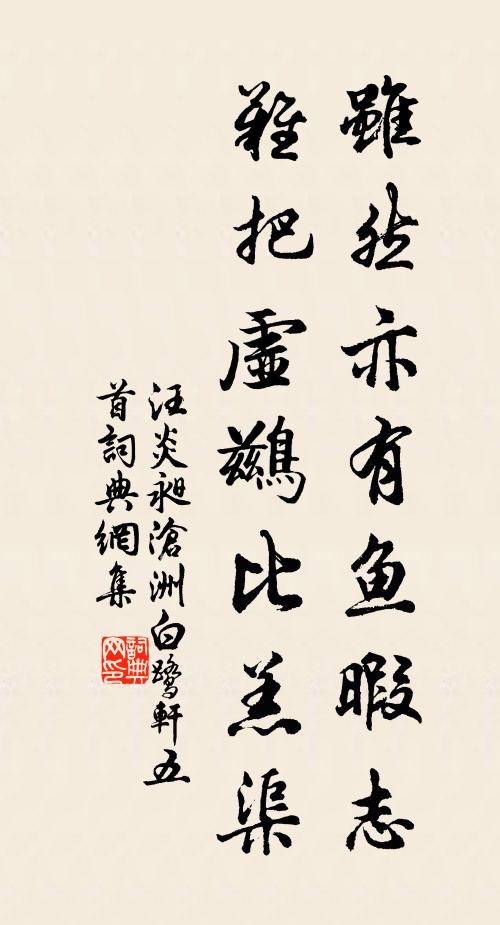 雖然亦有魚暇志
難把虛鷀比羔渠
汪炎昶滄洲白鷺軒五
首詞典網集
詞典網印